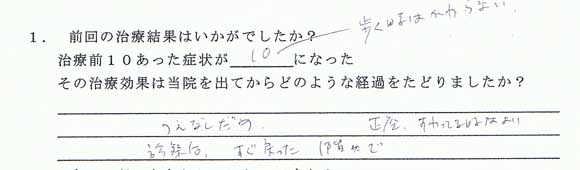 歩く時はかわらない。
1. 前回の治療結果はいかがでしたか?
治療前10あった症状が 10 になった
その治療効果は当院を出てからどのような経過をたどりましたか?
つえなしだめ、 正座、すわってる
診察台、すぐ戻った 階段で